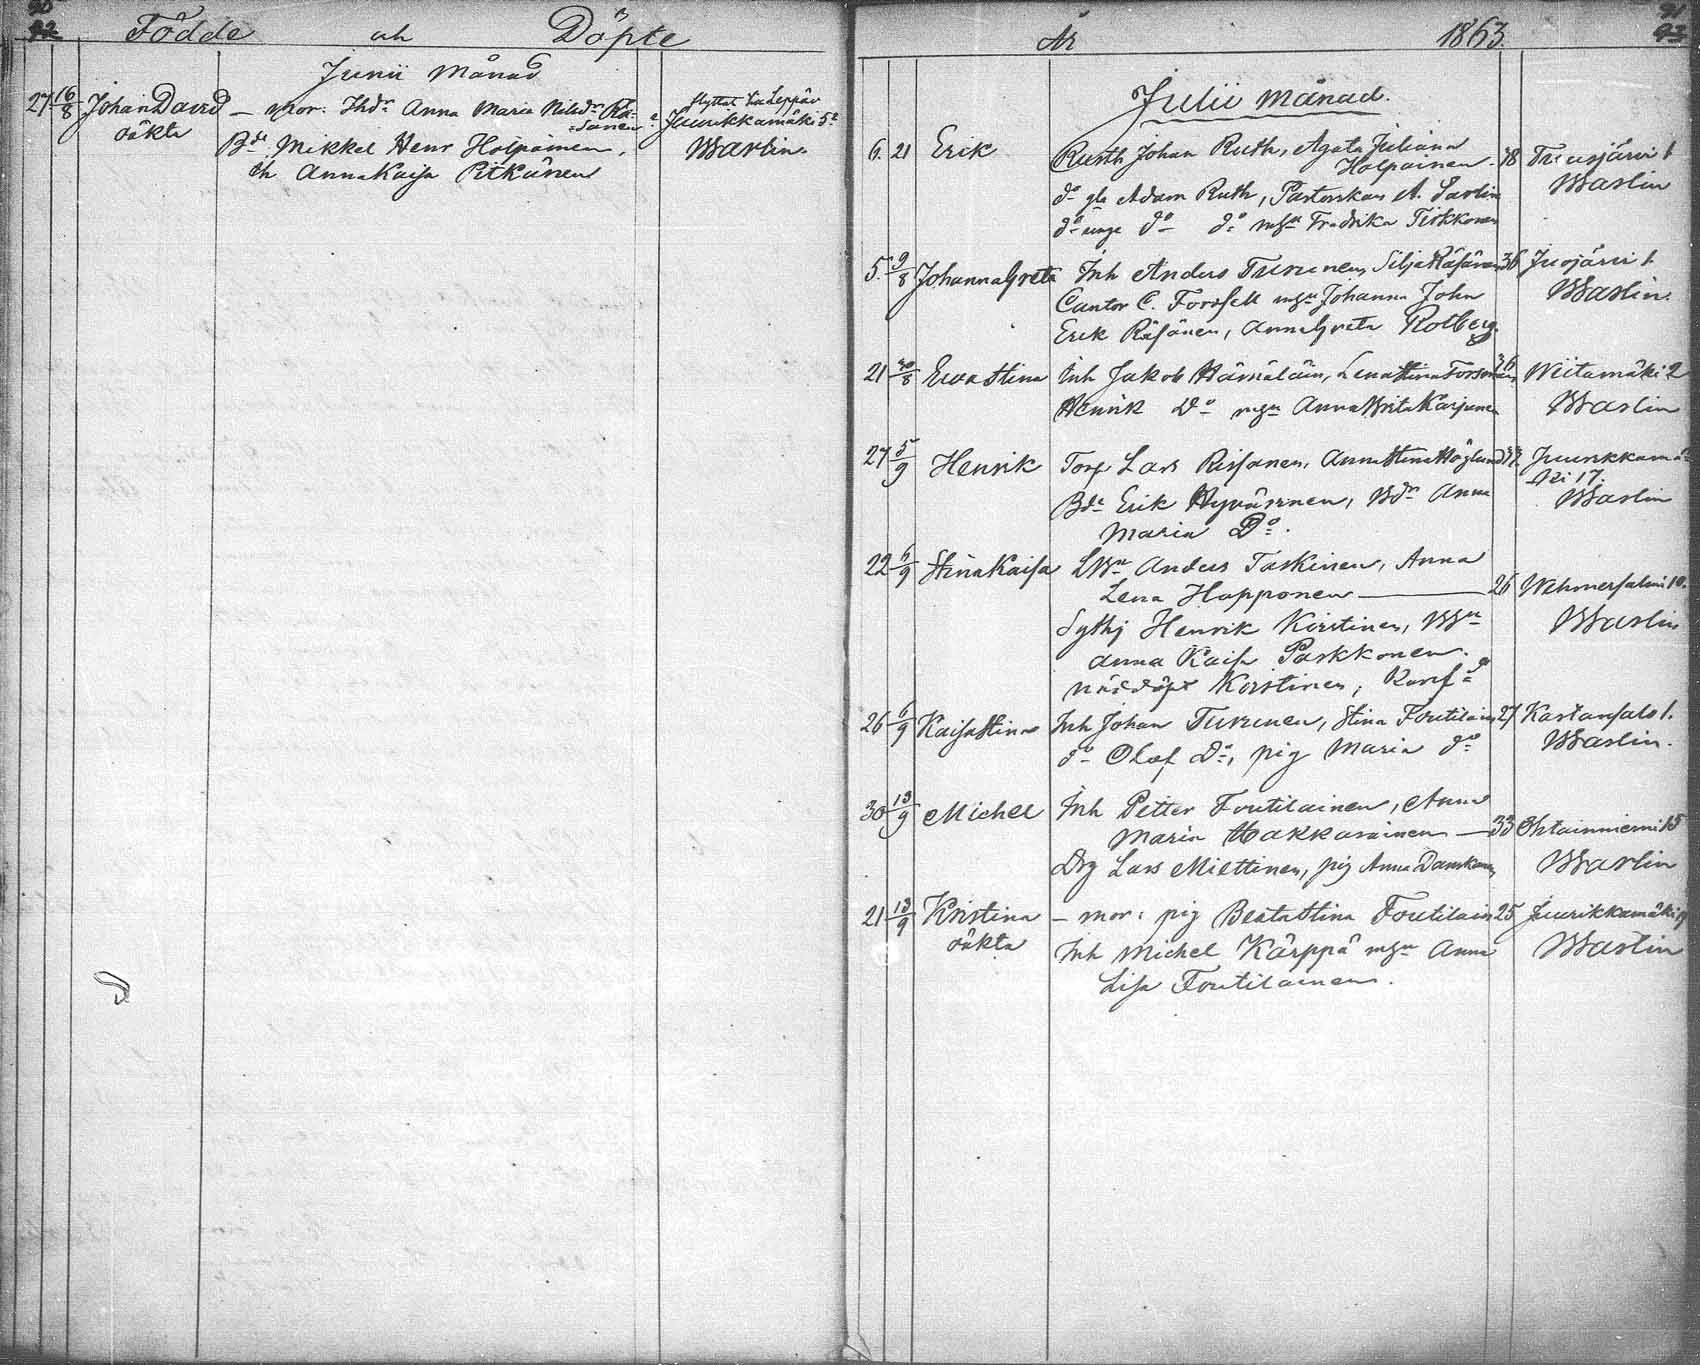 90
92
Födde och Döpte
Junii Månad
27 16/8 Johan David — mor. Ihdr Anna Maria Nilsdr Rä=
=sänen
oäkta
Bde Mikkel Henr Holpainen,
ch AnnaKaisa Pitkänen
flyttat
Juurikkamäki 5
Warlin.
91
93
År 1863.
Julii månad.
6. 21 Erik Rusth Johan Ruth, Agata Juliana
Holpainen. 38 Tuusjärvi 1
Warlin
do gla Adam Ruth, Pastorskan A. Sarlin
do unge do do mgn Fredrika Tirkkonen
5. 9/8 JohannaGreta Inh Anders Turunen, Silja Räsänen 36 Juojärvi 1.
Warlin.
Cantor C. Forssell mgn Johanna John
Erik Räsänen, AnnaGreta Rotberg.
21 30/8 Ewa Stina Inh Jakob Hämäläin, LenaStina Forsman 36 Wiitamäki 2
Warlin
Henrik Do mgn AnnaBrita Karjunen
27 5/9 Henrik Torp Lars Rissanen, AnnaStina Höglund 33 Juurikkamä=
ki 17.
Warlin
Bde Erik Hyvärinen, Wdr Anna
Maria Do.
22 6/9 StinaKaisa LBn Anders Taskinen, Anna
Lena Happonen — 26 Wehmersalmi 10.
Warlin
Sytnj Henrik Korstinen, Wn
Anna Kaisa Paskkonen.
Nöddöpt Korstinen,
26 6/9 KaisaStina Inh Johan Turunen, Stina Foutilain 27 Kartansalo 1.
Warlin.
do Olof Do, pig Maria do
30 13/9 Michel Inh Petter Foutilainen, Anna
Maria Hakkarainen — 33 Ohtainniemi 15
Warlin
Drg Lars Miettinen, pig Anna Danskanen
21 13/9 Kristina — mor: pig BeataStina Foutilain 25 Juurikkamäki 19
oäkta
Warlin
Inh Michel Kärppä mgn Anna
Lisa Foutilainen.